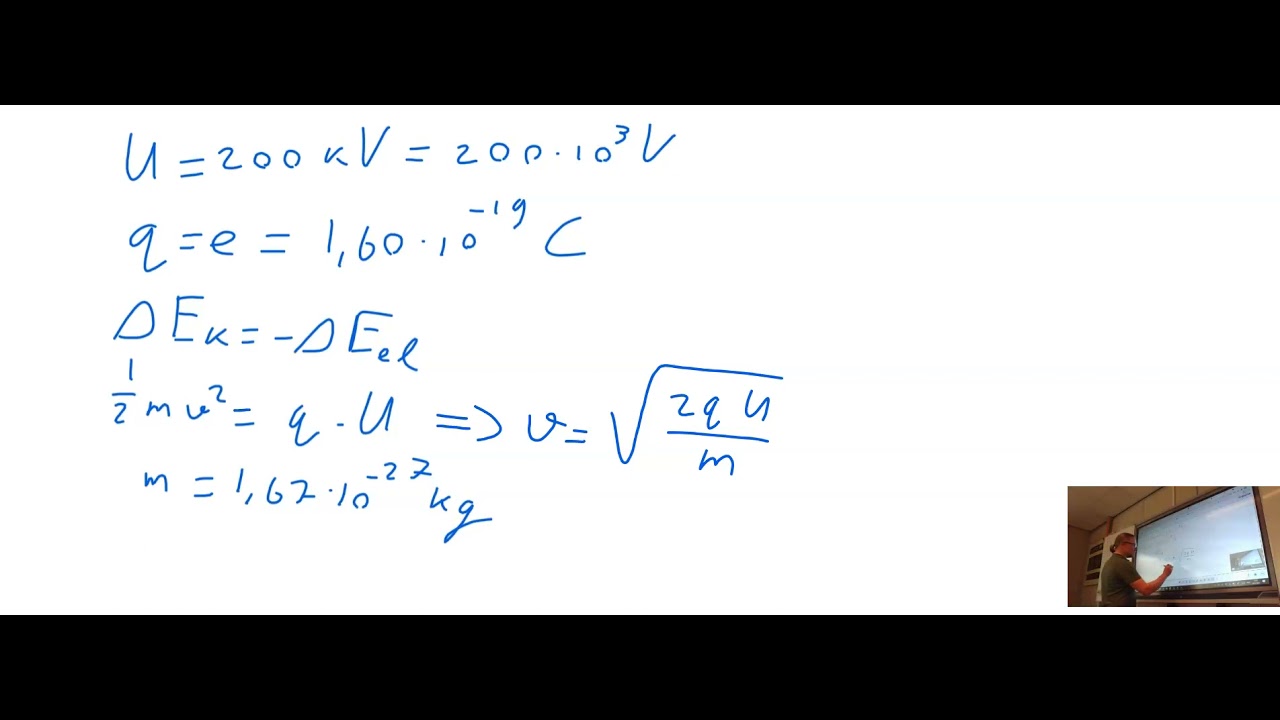 U = 200 kV = 200·10³ V
q = e = 1,60·10⁻¹⁹ C
ΔEₖ = -ΔEₑₗ
½ m v² = q · U => v = √(2qU/m)
m = 1,67·10⁻²⁷ kg